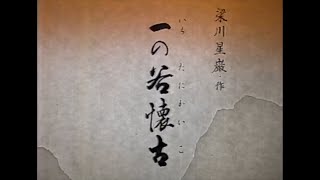 梁川星巌 作
一の谷懐古
いち たにかいこ